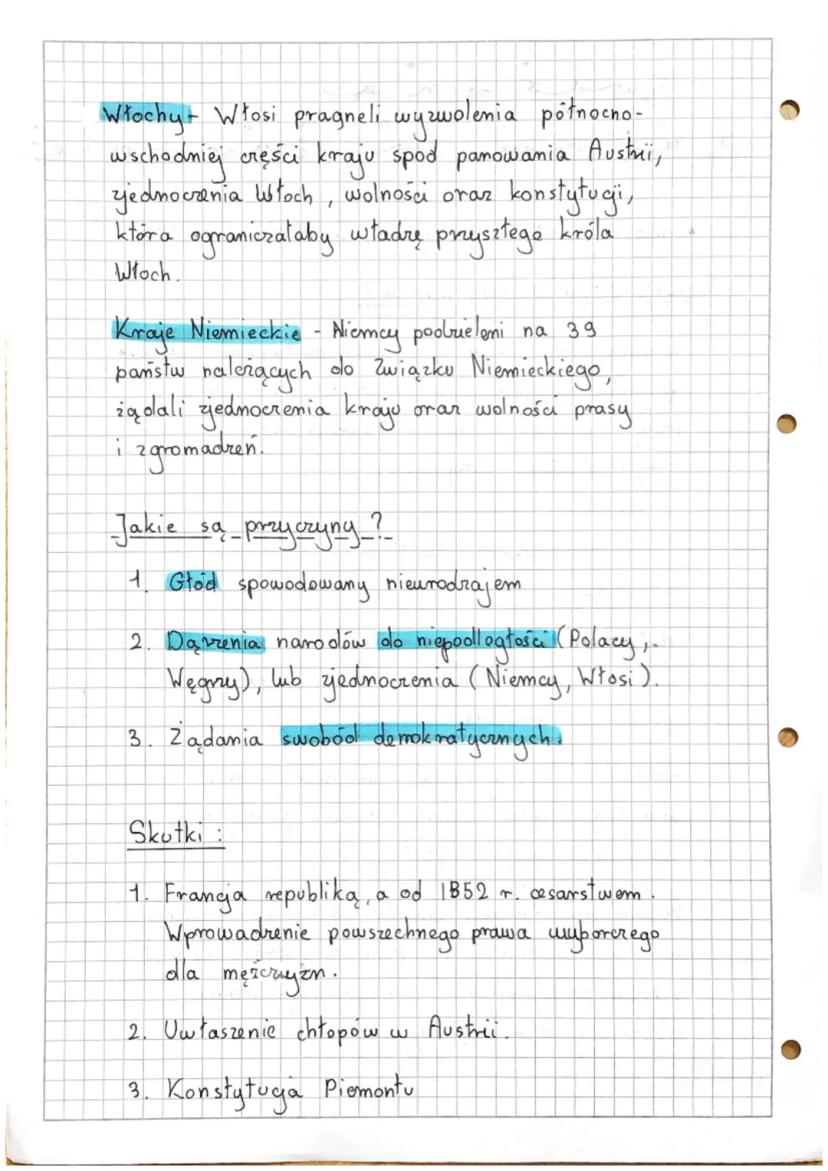 Włochy - Włosi pragneli wyzwolenia północno-
wschodniej części kraju spod panowania Austrii,
zjednoczenia Włoch, wolności oraz konstytucji,
która ograniczałaby władzę przyszłego króla
Włoch.
Kraje Niemieckie - Niemcy podzieleni na 39
państw należących do Związku Niemieckiego,
żądali zjednoczenia kraju oraz wolności prasy
i zgromadzeń.
Jakie są przyczyny?
1. Głód spowodowany nieurodzajem
2. Dążenia narodów do niepodległości (Polacy,
Węgrzy), lub zjednoczenia (Niemcy, Włosi).
3. Żądania swobód demokratycznych.
Skutki:
1. Francja republiką, a od 1852 r. cesarstwem.
Wprowadzenie powszechnego prawa wyborczego
dla mężczyzn.
2. Uwłaszenie chłopów w Austrii.
3. Konstytucja Piemontu